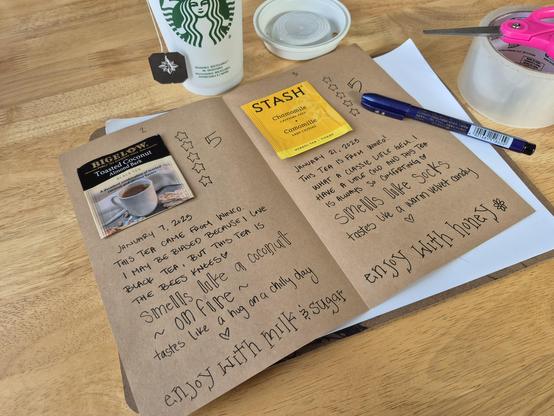 2
BIGELOW
Toasted Coconut
Almond Bark
5
JANUARY 7, 2023
THIS TEA CAME FROM WINCO.
I MAY BE BIASED BECAUSE I LOVE
BLACK TEA, BUT THIS TEA IS
THE BEES KNEES
smells like a coconut
~ on fire ~
tastes like a hug on a chilly day
enjoy with milk & sugar
3
STASH
Chamomile
Camomille
5
JANUARY 21, 2023
THIS TEA IS FROM WINCO!
WHAT A CLASSIC LITTLE TEA. I
HAVE A LITTLE COLD AND THIS TEA
IS ALWAYS SO COMFORTING
smells like socks
tastes like a warm velvet candy
enjoy with honey